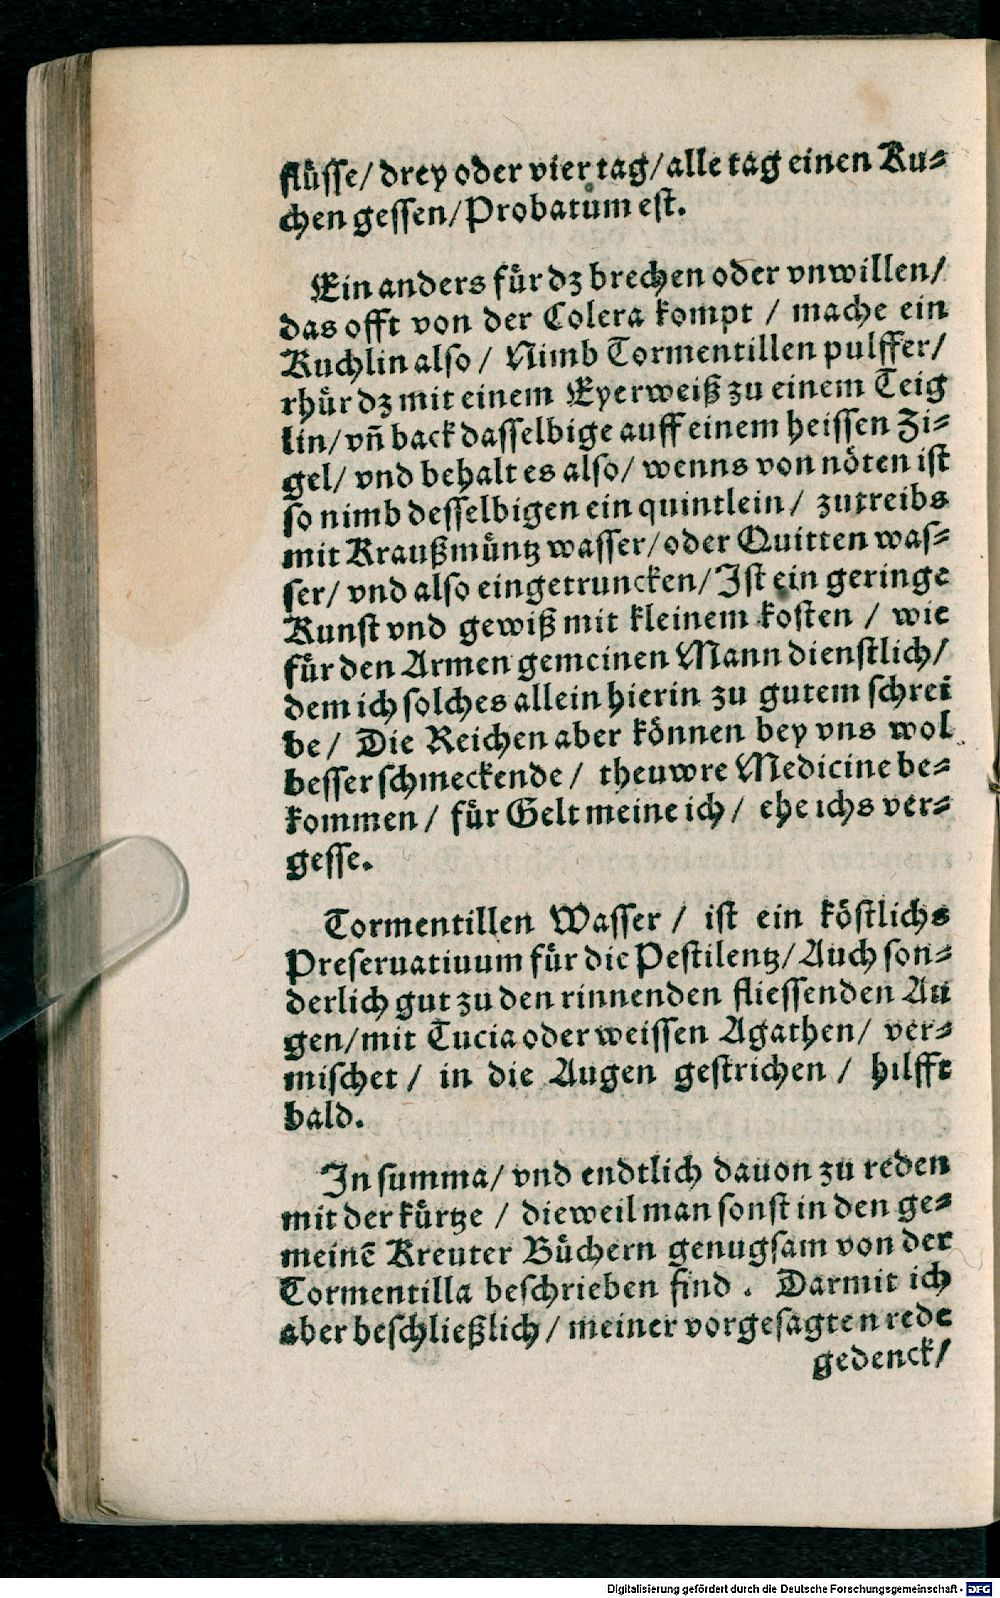 flüsse/ drey oder vier tag/ alle tag einen Ku⸗
chen gessen/ Probatum est.
Ein anders für dz brechen oder vnwillen/
das offt von der Colera kompt / mache ein
Kuchlin also / Nimb Tormentillen pulffer/
rhür dz mit einem Eyerweiß zu einem Teig
lin/ vñ back dasselbige auff einem heissen Zi⸗
gel/ vnd behalt es also/ wenns von nöten ist
so nimb desselbigen ein quintlein / zutreibs
mit Kraußmüntz wasser/ oder Quitten was⸗
ser/ vnd also eingetruncken/ Ist ein geringe
Kunst vnd gewiß mit kleinem kosten / wie
für den Armen gemeinen Mann dienstlich/
dem ich solches allein hierin zu gutem schrei
be/ Die Reichen aber können bey vns wol
besser schmeckende / theuwre Medicine be⸗
kommen / für Gelt meine ich / ehe ichs ver⸗
gesse.
Tormentillen Wasser / ist ein köstlichs
Preseruatiuum für die Pestilentz/ Auch son⸗
derlich gut zu den rinnenden fliessenden Au
gen/ mit Tucia oder weissen Agathen/ ver⸗
mischet / in die Augen gestrichen / hilfft
bald.
In summa/ vnd endtlich dauon zu reden
mit der kürtze / dieweil man sonst in den ge⸗
meinē Kreuter Büchern genugsam von der
Tormentilla beschrieben find . Darmit ich
aber beschließlich / meiner vorgesagten rede
gedenck/
Digitalisierung gefördert durch die Deutsche Forschungsgemeinschaft - DFG